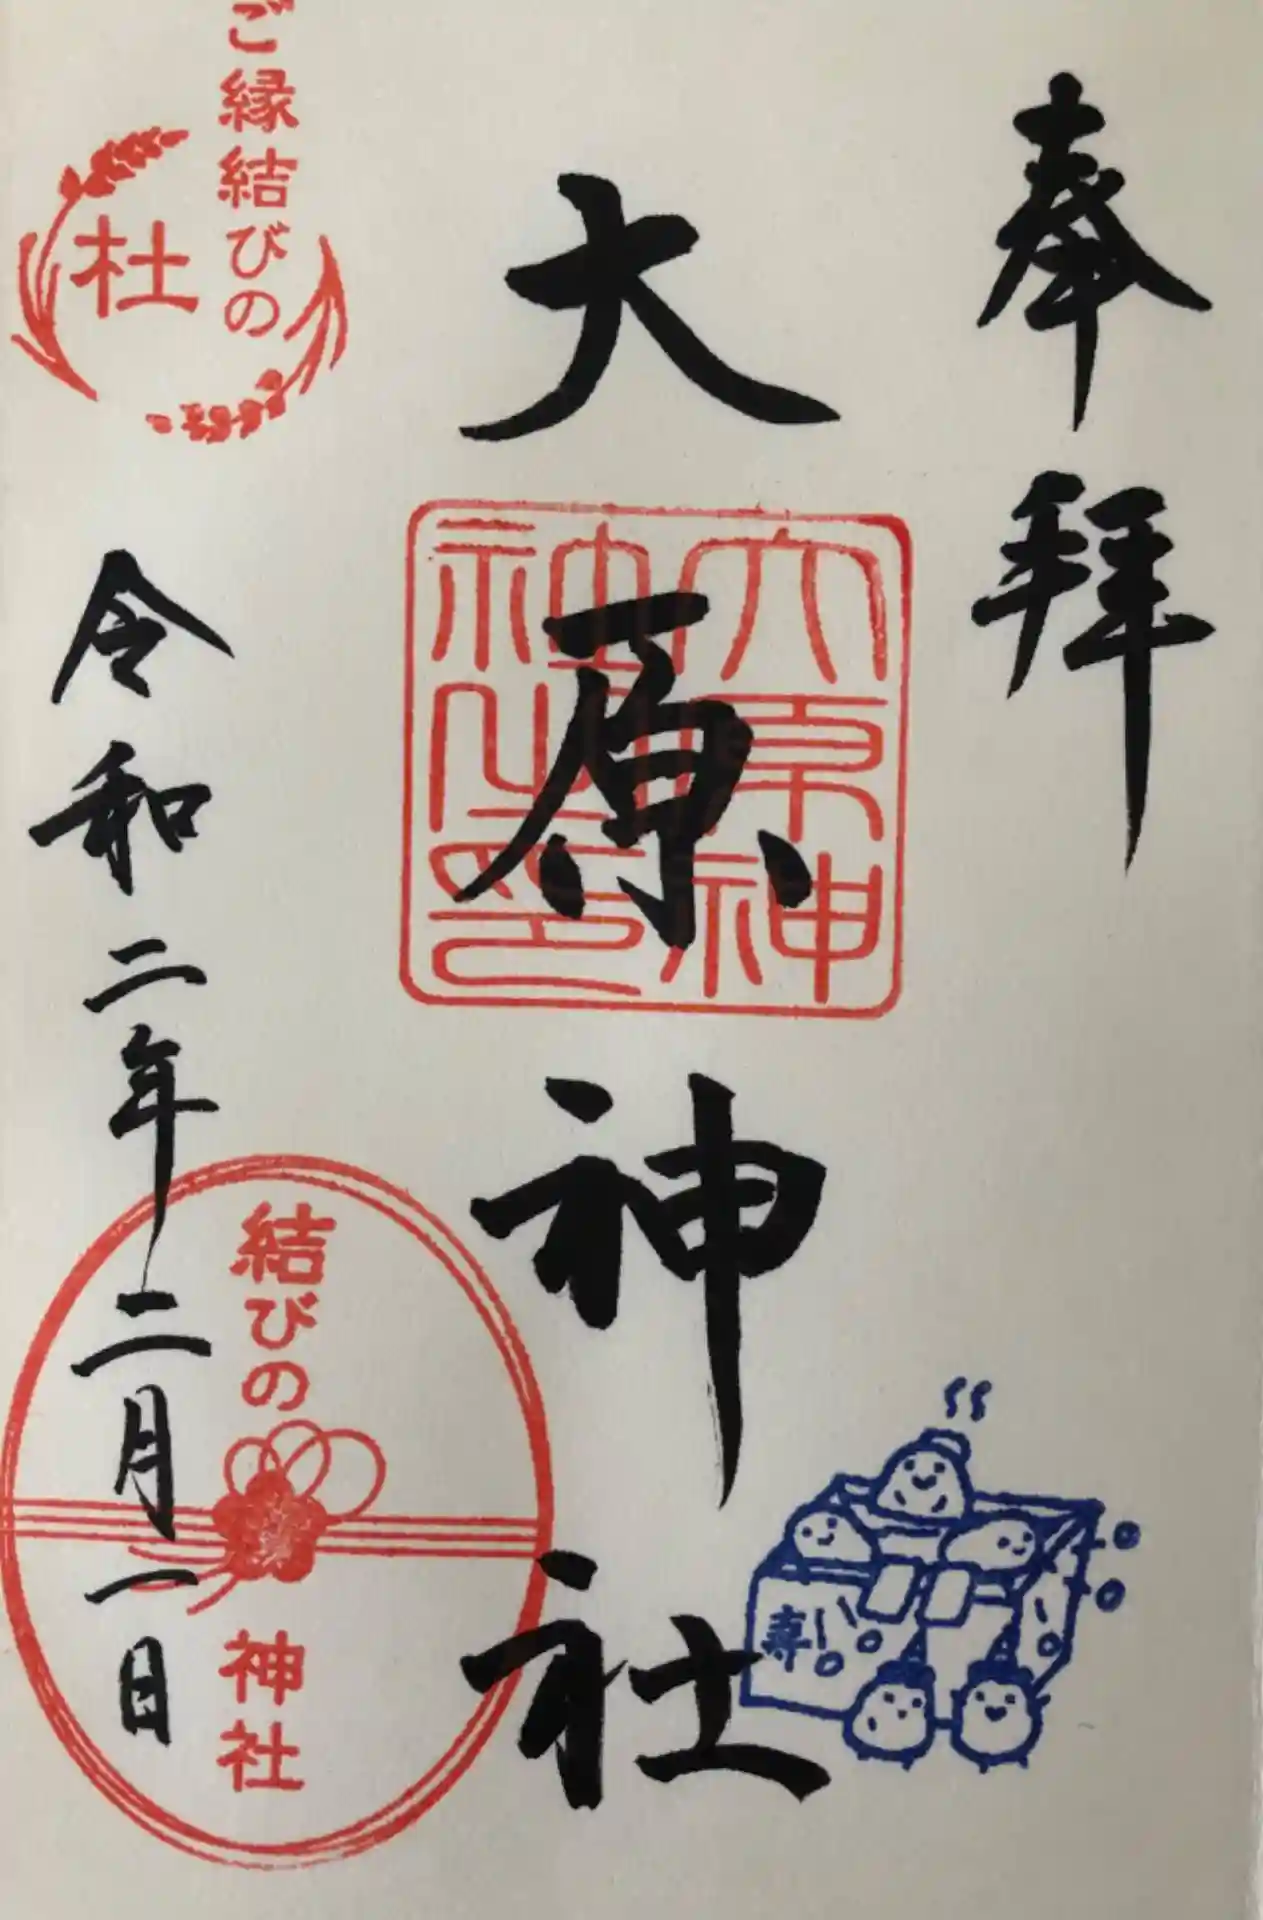 奉拝
大原神社
大原神
社之印
ご縁結びの
杜
令和二年二月一日
結びの
神社
寿